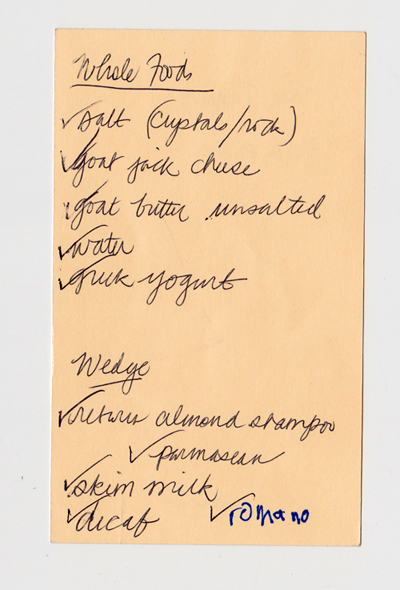 Whole Foods
✓salt (crystals/rock)
✓goat jack cheese
goat butter unsalted
✓water
✓greek yogurt
Wedge
✓return almond shampoo
✓parmasean
✓skim milk
✓decaf ✓romano